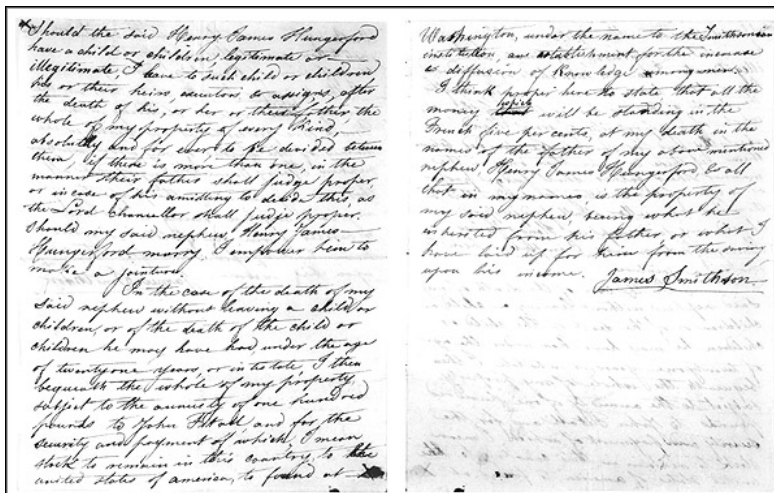 Should the said Henry James Hungerford
have a child or children legitimate or
illegitimate, I leave to such child or children
his or their heirs, executors, & assigns, after
the death of his, or her or their father the
whole of my property of every kind,
absolutely and for ever to be divided between
them, if there is more than one, in the
manner their father shall judge proper,
or in case of his omitting to decide this, as
the Lord chancellor shall judge proper.
Should my said nephew, Henry James
Hungerford marry, I empower him to
make a jointure.
In the case of the death of my
said nephew without leaving a child or
children, or of the death of the child or
children he may have had, under the age
of twentyone years, or intestate, I then
bequeath the whole of my property,
subject to the annuity of one hundred
pounds to John Fitall, and for the
security and payment of which, I mean
stock to remain in this country, to the
united states of america, to found at
Washington, under the name to the Smithsonian
institution, an establishment for the increase
& diffusion of Knowledge among men.
I think proper here to state that all the
money which will be standing in the
French five per cents, at my death in the
names of the father of my above mentioned
nephew, Henry James Hungerford, & all
that in my names, is the property of
my said nephew, being what he
inherited from his father, or what I
have laid up for him from the savings
upon his income. James Smithson